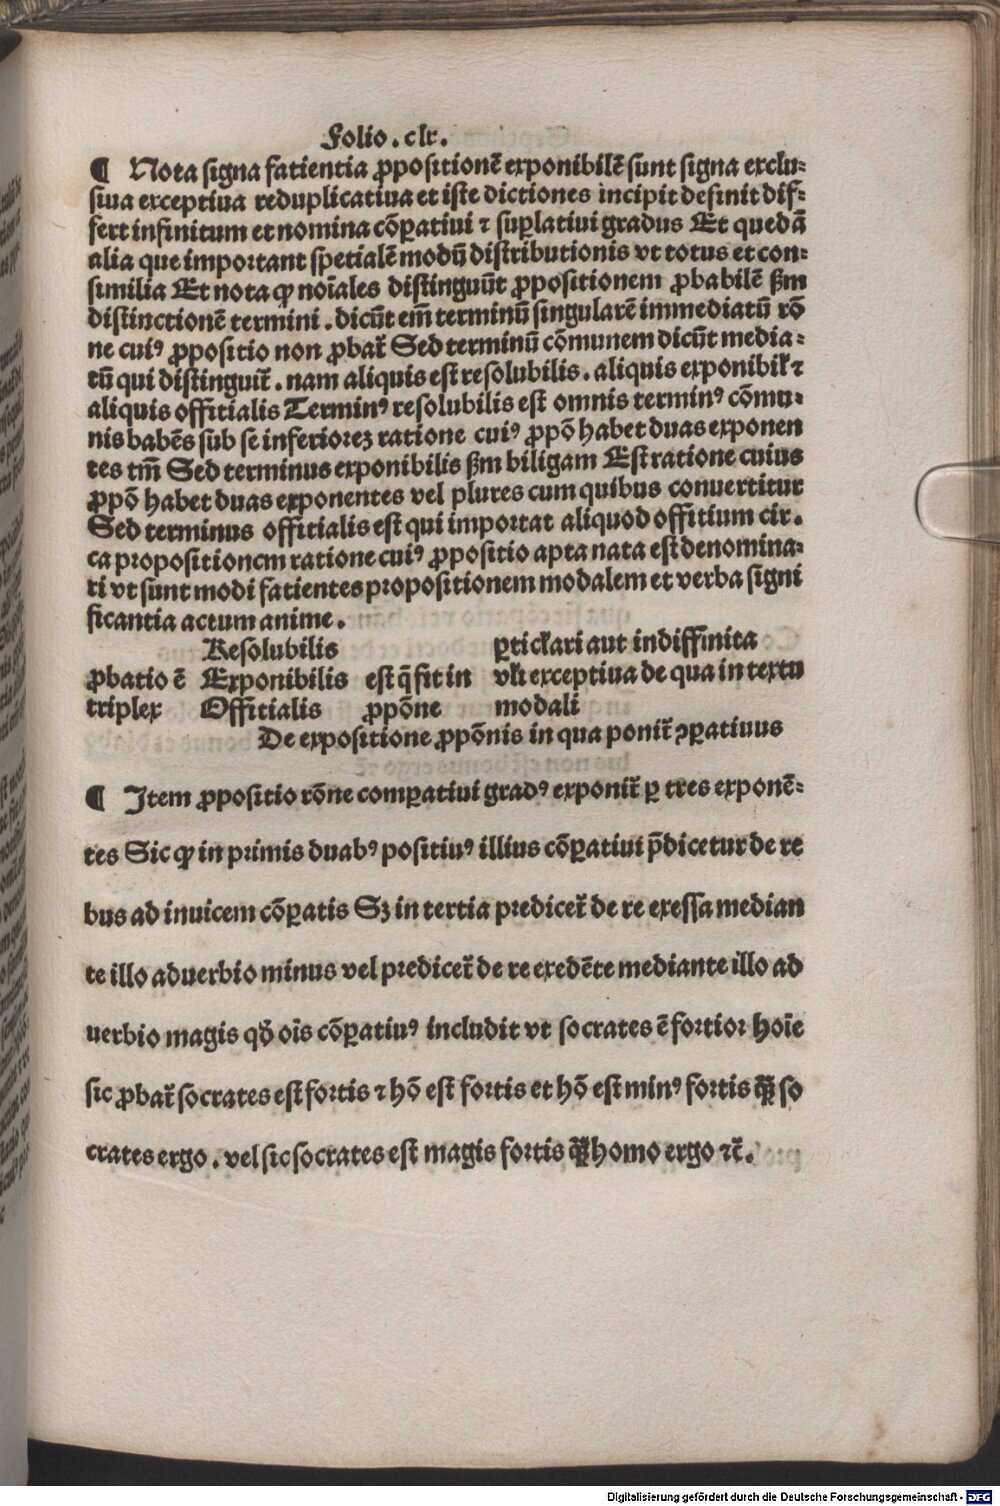 Folio. clx.
¶ Nota signa fatientia ꝓpositionē exponibilē sunt signa exclu⸗
siua exceptiua reduplicatiua et iste dictiones incipit desinit dif⸗
fert infinitum et nomina cōꝑatiui ⁊ suꝑlatiui gradus Et quedā
alia que important spetialē modū distributionis vt totus et con⸗
similia Et nota ꝙ noīales distinguūt ꝓpositionem ꝓbabilē ẞm
distinctionē termini. dicūt em̄ terminū singularē immediatū rō
ne cuiꝰ ꝓpositio non ꝓbat᷑ Sed terminū cōmunem dicūt media⸗
tū qui distinguit᷑. nam aliquis est resolubilis. aliquis exponibil̓ ⁊
aliquis offitialis Terminꝰ resolubilis est omnis terminꝰ cōmu⸗
nis babēs sub se inferiorez ratione cuiꝰ ꝓpō habet duas exponen
tes tm̄ Sed terminus exponibilis ẞm biligam Est ratione cuius
ꝓpō habet duas exponentes vel plures cum quibus conuertitur
Sed terminus offitialis est qui importat aliquod offitium cir.
ca propositionem ratione cuiꝰ ꝓpositio apta nata est denomina⸗
ri vt sunt modi fatientes propositionem modalem et verba signi
ficantia actum anime.
Resolubilis ꝑticl̓ari aut indiffinita
ꝓbatio ē Exponibilis est q̄ fit in vl̓i exceptiua de qua in textu
triplex Offitialis ꝓpōne modali
De expositione ꝓpōnis in qua ponit᷑ ꝯꝑatiuus
¶ Item ꝓpositio rōne comꝑatiui gradꝰ exponit᷑ ꝑ tres exponē⸗
tes Sic ꝙ in primis duabꝰ positiuꝰ illius cōꝑatiui p̄dicetur de re
bus ad inuicem cōꝑatis Sꝫ in tertia predicet᷑ de re exessa median
te illo aduerbio minus vel predicet᷑ de re exedēte mediante illo ad
uerbio magis qđ oīs cōꝑatiuꝰ includit vt socrates ē fortior hoīe
sic ꝓbat᷑ socrates est fortis ⁊ hō est fortis et hō est minꝰ fortis ꝙ̄ so
crates ergo. vel sic socrates est magis fortis ꝙ̄ homo ergo ⁊c̄.
Digitalisierung gefördert durch die Deutsche Forschungsgemeinschaft - DFG